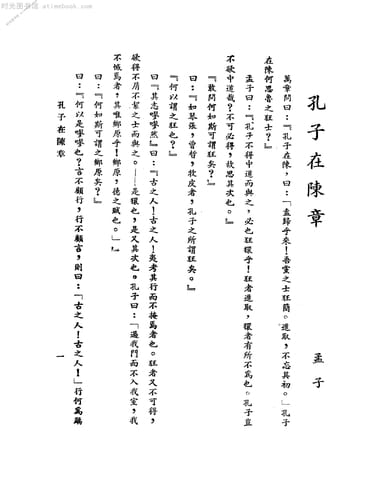 时光图书馆 atimebook.com
孔子在陳章
孟子
萬章問曰：『孔子在陳，曰：「盍歸乎來！吾黨之士狂簡。進取，不忘其初。」孔子
在陳何思魯之狂士？』
孟子曰：『孔子不得中道而與之，必也狂獧乎！狂者進取，獧者有所不爲也。孔子豈
不欲中道哉？不可必得，故思其次也。』
『敢問何如斯可謂狂矣？』
曰：『如琴張，曾晳，牧皮者，孔子之所謂狂矣。』
『何以謂之狂也？』
曰『其志嘐嘐然』曰：『古之人！古之人！夷考其行而不掩焉者也。狂者又不可得，
欲得不屑不絜之士而與之。——是獧也，是又其次也。孔子曰：「過我門而不入我室，我
不憾焉者，其唯鄉原乎！鄉原，德之賊也。」』
曰：『何如斯可謂之鄉原矣？』
曰：『何以是嘐嘐也？言不顧行，行不顧言，則曰：「古之人！古之人！」行何爲踽
孔子在陳章
一